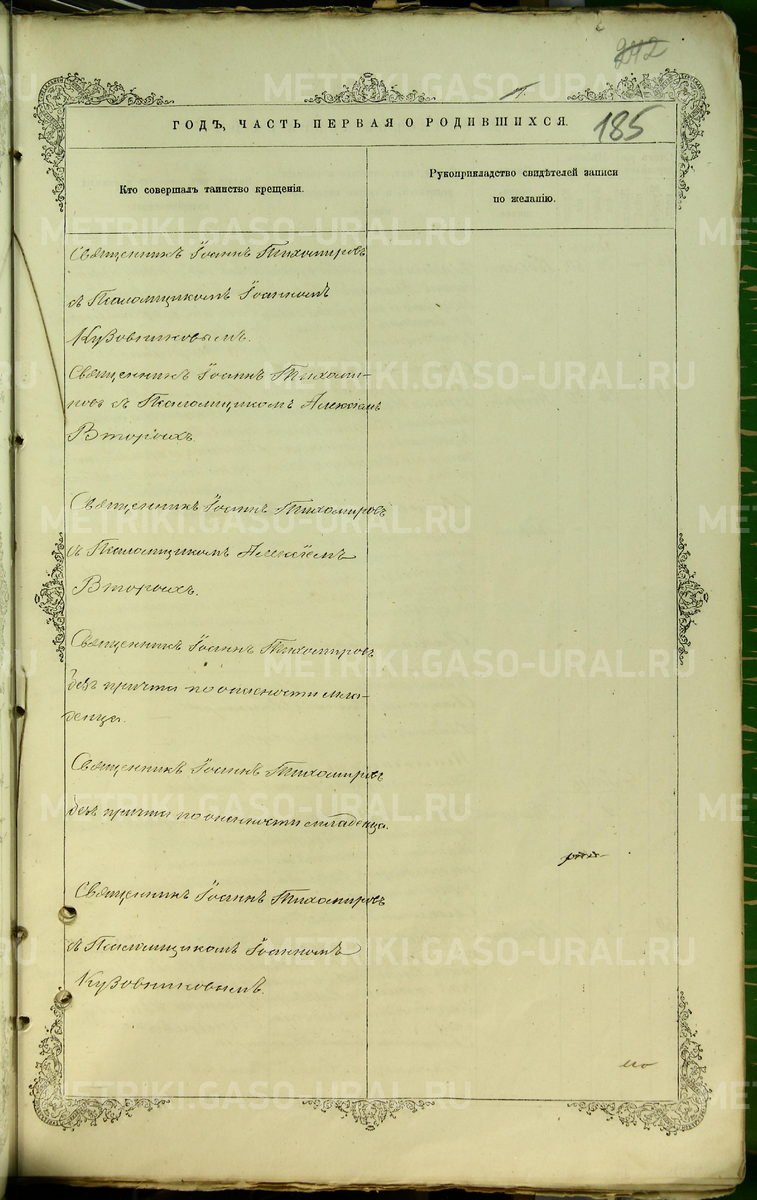 212
185
ГОДЪ, ЧАСТЬ ПЕРВАЯ О РОДИВШИХСЯ.
Кто совершалъ таинство крещенія.
Рукоприкладство свидѣтелей записи
по желанію.
Священникъ Іоаннъ Тихомировъ
съ Псаломщикомъ Іоанномъ
Кузовниковымъ.
Священникъ Іоаннъ Тихоми-
ровъ съ Псаломщикомъ Алексѣемъ
Вторыхъ
Священникъ Іоаннъ Тихомировъ
съ Псаломщикомъ Алексѣемъ
Вторыхъ.
Священникъ Іоаннъ Тихомировъ
безъ причта по опасности мла-
денца.
Священникъ Іоаннъ Тихомировъ
безъ причта по опасности младенца.
Священникъ Іоаннъ Тихомировъ
съ Псаломщикомъ Іоанномъ
Кузовниковымъ.
METRIKI.GASO-URAL.RU